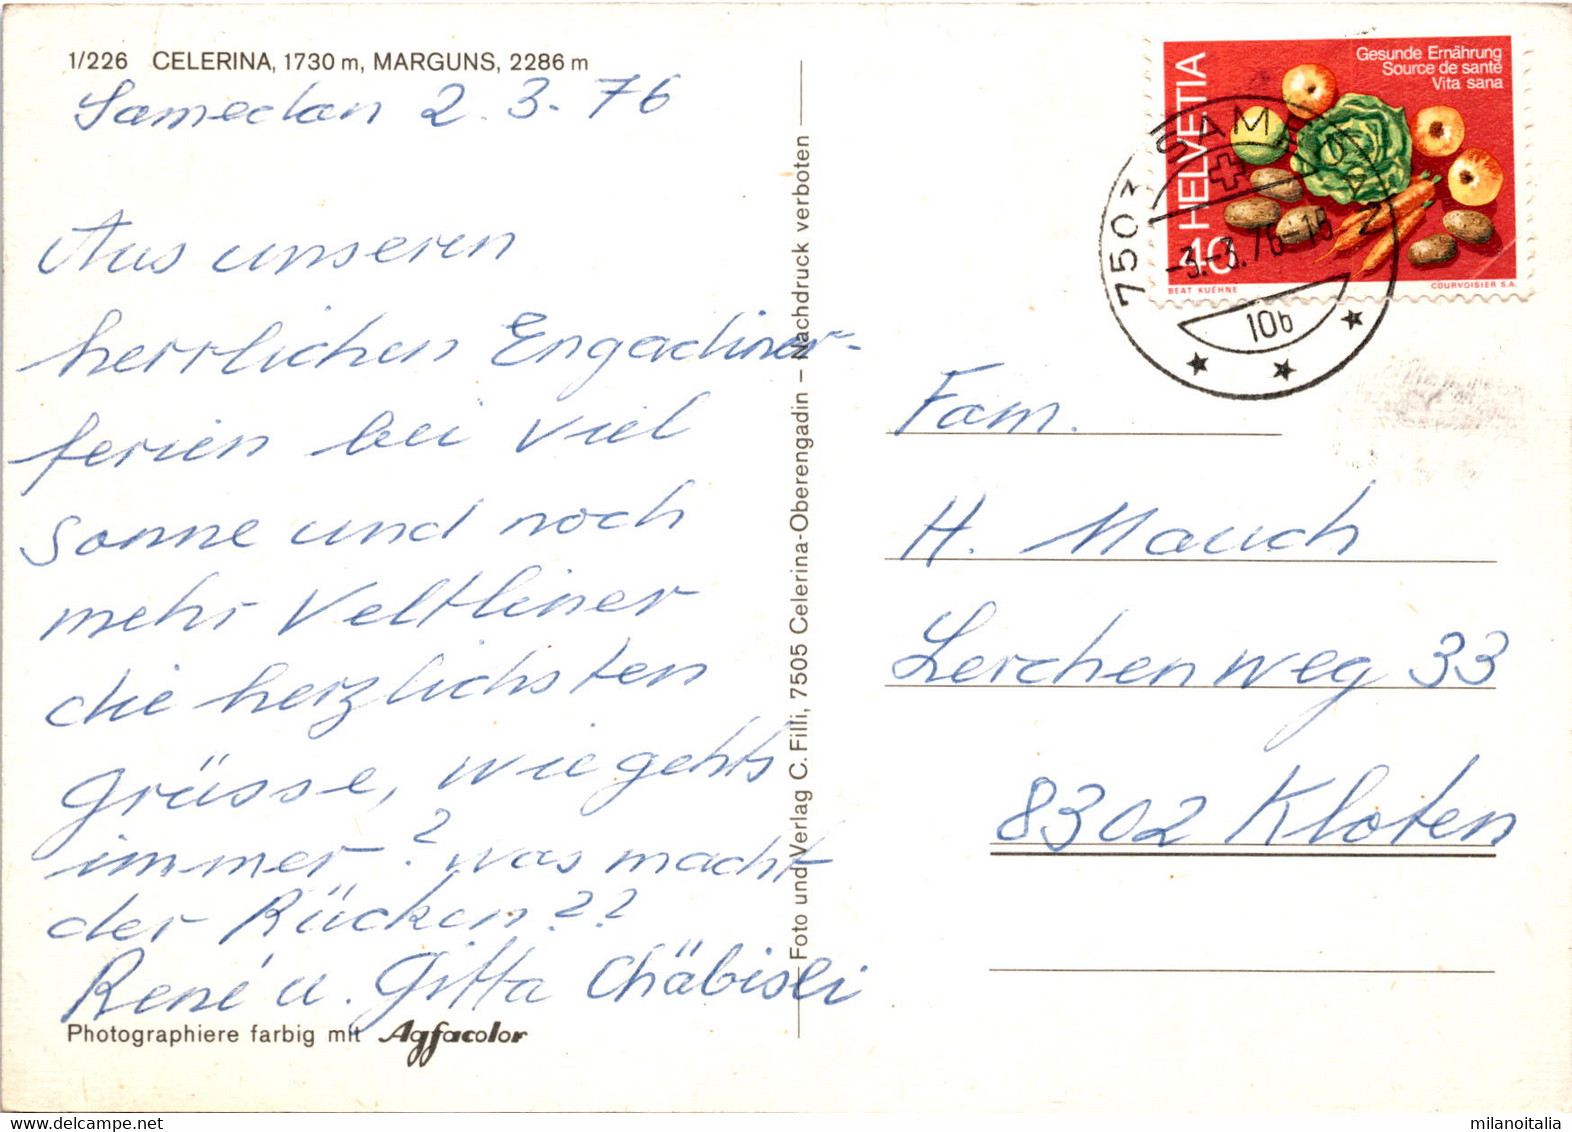 1/226 CELERINA, 1730 m, MARGUNS, 2286 m
Samedan 2. 3. 76
Aus unseren
herrlichen Engadiner-
ferien bei viel
Sonne und noch
mehr Veltliner
die herzlichsten
Grüsse, wie gehts
immer? was macht
der Rücken??
René u. Gitta Chäbisli
Photographiere farbig mit Agfacolor
Foto und Verlag C. Filli, 7505 Celerina-Oberengadin – Nachdruck verboten
HELVETIA
Gesunde Ernährung
Source de santé
Vita sana
40
BEAT KUEHNE
COURVOISIER S.A.
7503 SAMEDAN
-3.-3.76-16
10b
Fam.
H. Mauch
Lerchenweg 33
8302 Kloten
milanoitalia